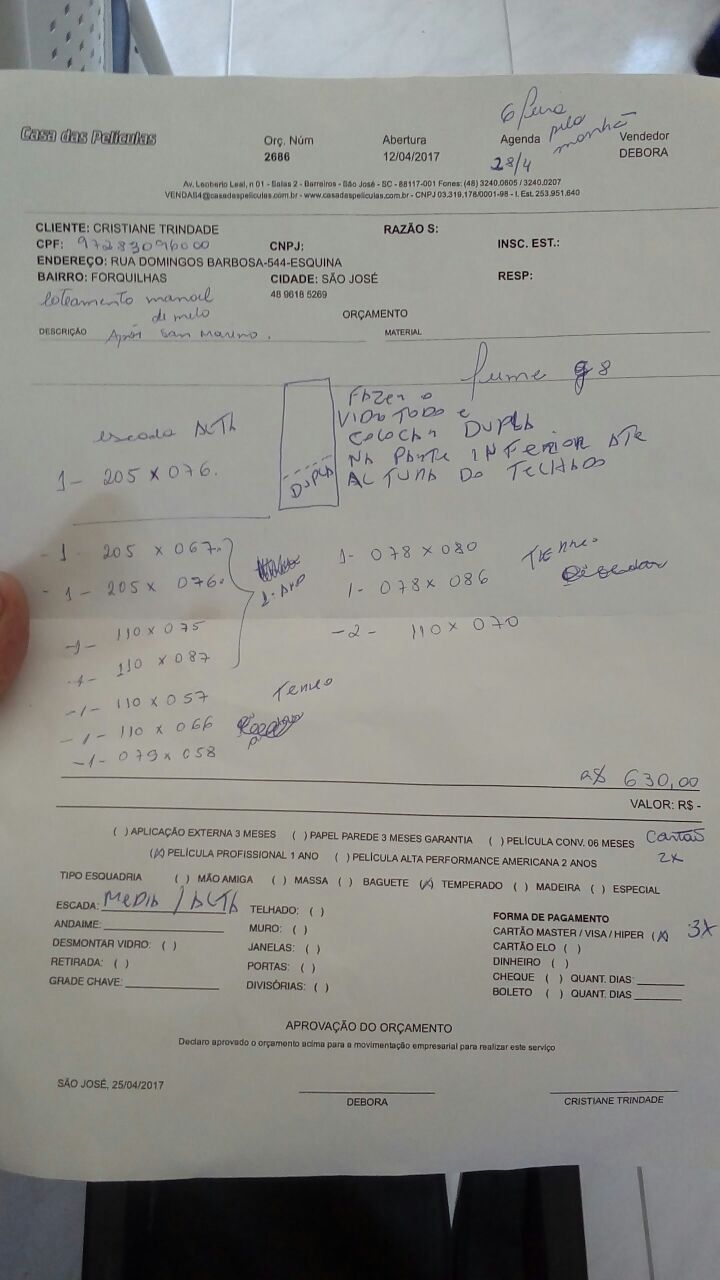 6 feira
pela
manhã
Casa das Películas
Orç. Núm Abertura Agenda Vendedor
2686 12/04/2017 28/4 DEBORA
Av. Leoberto Leal, n 01 - Salas 2 - Barreiros - São José - SC - 88117-001 Fones: (48) 3240.0605 / 3240.0207
VENDAS4@casadaspeliculas.com.br - www.casadaspeliculas.com.br - CNPJ 03.319.178/0001-98 - I. Est. 253.951.640
CLIENTE: CRISTIANE TRINDADE RAZÃO S:
CPF: 97283096000 CNPJ: INSC. EST.:
ENDEREÇO: RUA DOMINGOS BARBOSA-544-ESQUINA
BAIRRO: FORQUILHAS CIDADE: SÃO JOSÉ RESP:
loteamento manoel 48 9618 5269
de melo ORÇAMENTO
DESCRIÇÃO Após San Marino. MATERIAL
fume g8
FAZER o
VIDRO TODO e
escada ALTA COLOCAR DUPLA
NA PARTE INFERIOR ATE
1- 205 x 076. DUPLA ALTURA DO TELHADO
-1- 205 x 067. 1- 078 x 080 Terreo
-1- 205 x 076. 1- AND 1- 078 x 086
-1- 110 x 075 -2- 110 x 070
-1- 110 x 087
-1- 110 x 057 Terreo
-1- 110 x 066
-1- 079 x 058
R$ 630,00
VALOR: R$ -
( ) APLICAÇÃO EXTERNA 3 MESES ( ) PAPEL PAREDE 3 MESES GARANTIA ( ) PELÍCULA CONV. 06 MESES Cartão
(X) PELÍCULA PROFISSIONAL 1 ANO ( ) PELÍCULA ALTA PERFORMANCE AMERICANA 2 ANOS 2x
TIPO ESQUADRIA ( ) MÃO AMIGA ( ) MASSA ( ) BAGUETE (X) TEMPERADO ( ) MADEIRA ( ) ESPECIAL
ESCADA: MEDIA / ALTA TELHADO: ( )
ANDAIME: MURO: ( ) FORMA DE PAGAMENTO
DESMONTAR VIDRO: ( ) JANELAS: ( ) CARTÃO MASTER / VISA / HIPER (X) 3X
RETIRADA: ( ) PORTAS: ( ) CARTÃO ELO ( )
GRADE CHAVE: DIVISÓRIAS: ( ) DINHEIRO ( )
CHEQUE ( ) QUANT. DIAS:
BOLETO ( ) QUANT. DIAS
APROVAÇÃO DO ORÇAMENTO
Declaro aprovado o orçamento acima para a movimentação empresarial para realizar este serviço
SÃO JOSÉ, 25/04/2017
DEBORA CRISTIANE TRINDADE